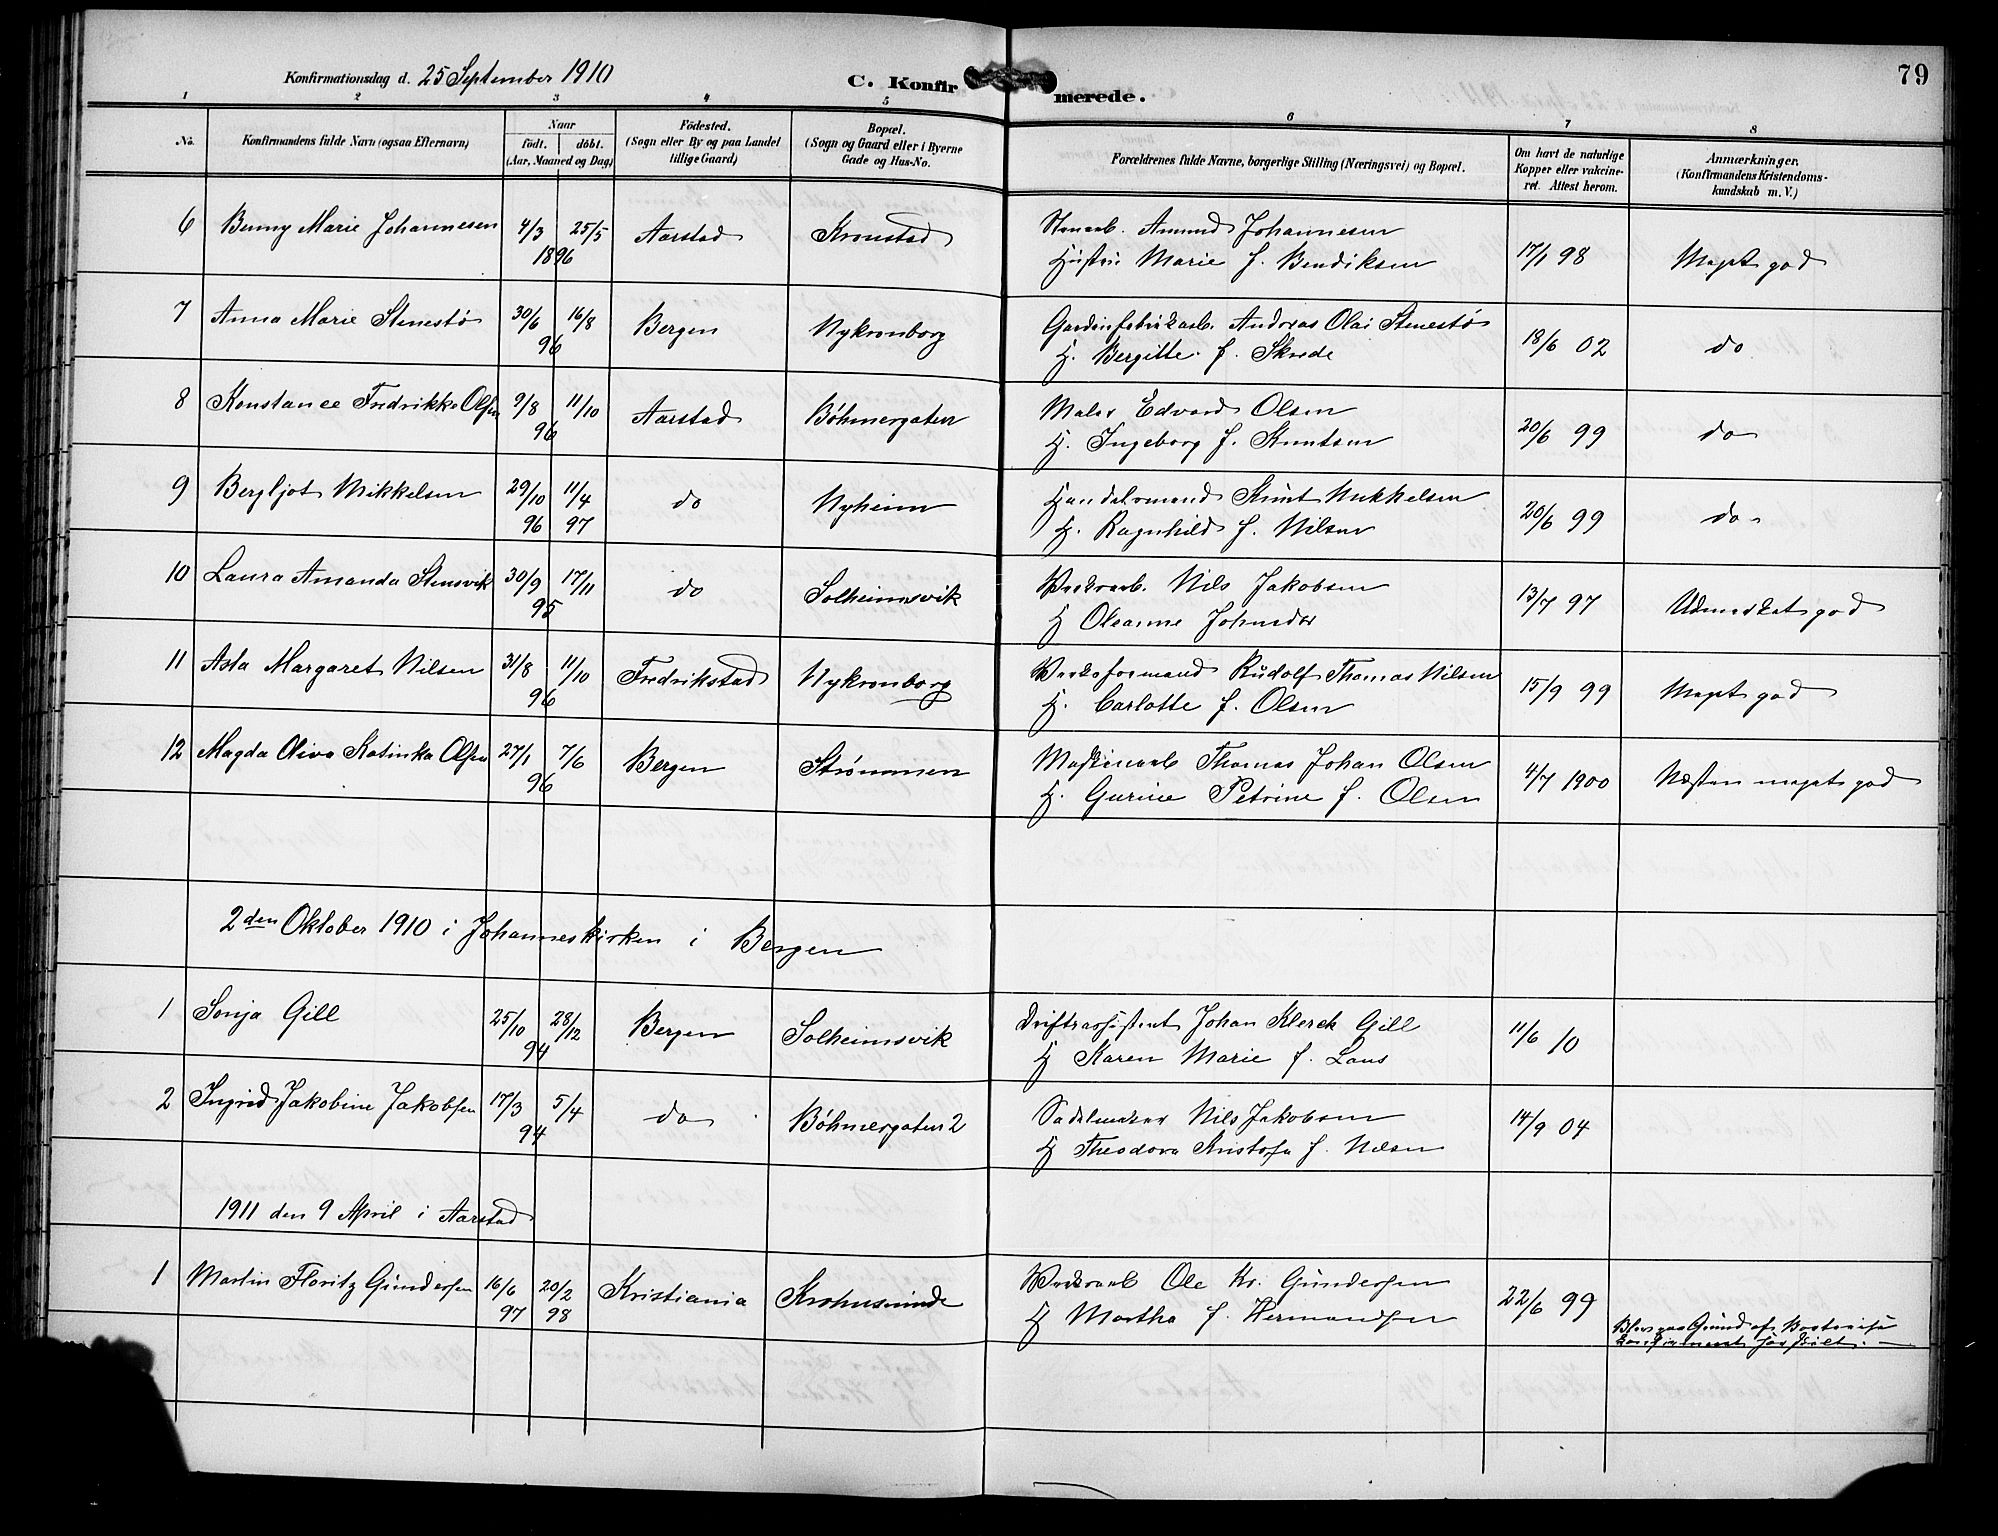 Konfirmationsdag d. 25 September 1910
C. Konfirmerede.
79
1 2 3 4 5 6 7 8
No.
Konfirmandens fulde Navn (ogsaa Efternavn)
Naar
födt. döbt.
(Aar, Maaned og Dag)
Födested.
(Sogn eller By og paa Landet
tillige Gaard)
Bopæl.
(Sogn og Gaard eller i Byerne
Gade og Hus-No.
Forældrenes fulde Navne, borgerlige Stilling (Næringsvei) og Bopæl.
Om havt de naturlige
Kopper eller vakcine-
ret. Attest herom.
Anmærkninger.
(Konfirmandens Kristendoms-
kundskab m. V.)
6 Benny Marie Johannesen 4/3 25/5 Aarstad Kronstad Stenarb. Amund Johannesen 17/1 98 Meget god
1896 Hustru Marie f. Bendiksen
7 Anna Marie Stenestø 30/6 16/8 Bergen Nykronborg Gardinfabrikarb. Andreas Olai Stenestø 18/6 02 do
96 H. Bergitte f. Skrede
8 Konstance Fredrikke Olsen 9/8 11/10 Aarstad Bøhmergaten Maler Edvard Olsen 20/6 99 do
96 H. Ingeborg f. Knutsen
9 Bergljot Mikkelsen 29/10 11/4 do Nyheim Handelsmand Knut Mikkelsen 20/6 99 do
96 97 H. Ragnhild f. Nilsen
10 Laura Amanda Stensvik 30/9 17/11 do Solheimsvik Værksarb. Nils Jakobsen 13/7 97 Udmerket god
95 H Olsanne Johnsdtr
11 Asta Margaret Nilsen 31/8 11/10 Fredrikstad Nykronborg Verksformand Rudolf Thomas Nilsen 15/9 99 Meget god
96 H. Carlotte f. Olsen
12 Magda Oliva Katinka Olsen 27/1 7/6 Bergen Strømmen Maskinarb Thomas Johan Olsen 4/7 1900 Næsten meget god
96 H. Gurine Petrine f. Olsen
2den Oktober 1910 i Johanneskirken i Bergen
1 Sonja Gill 25/10 28/12 Bergen Solheimsvik Driftsassistent Johan Klerck Gill 11/6 10
94 H Karen Marie f. Laus
2 Ingrid Jakobine Jakobsen 17/3 5/4 do Bøhmergaten 2 Sadelmaker Nils Jakobsen 14/9 04
94 H Theodora Kristofa f. Nilsen
1911 den 9 April i Aarstad
1 Martin Floritz Gundersen 16/6 20/2 Kristiania Krohnsminde Verksarb Ole Kr. Gundersen 22/6 99
97 98 H Martha f. Hermandsen
Blev paa Grund af Bortreise
konfirmert før